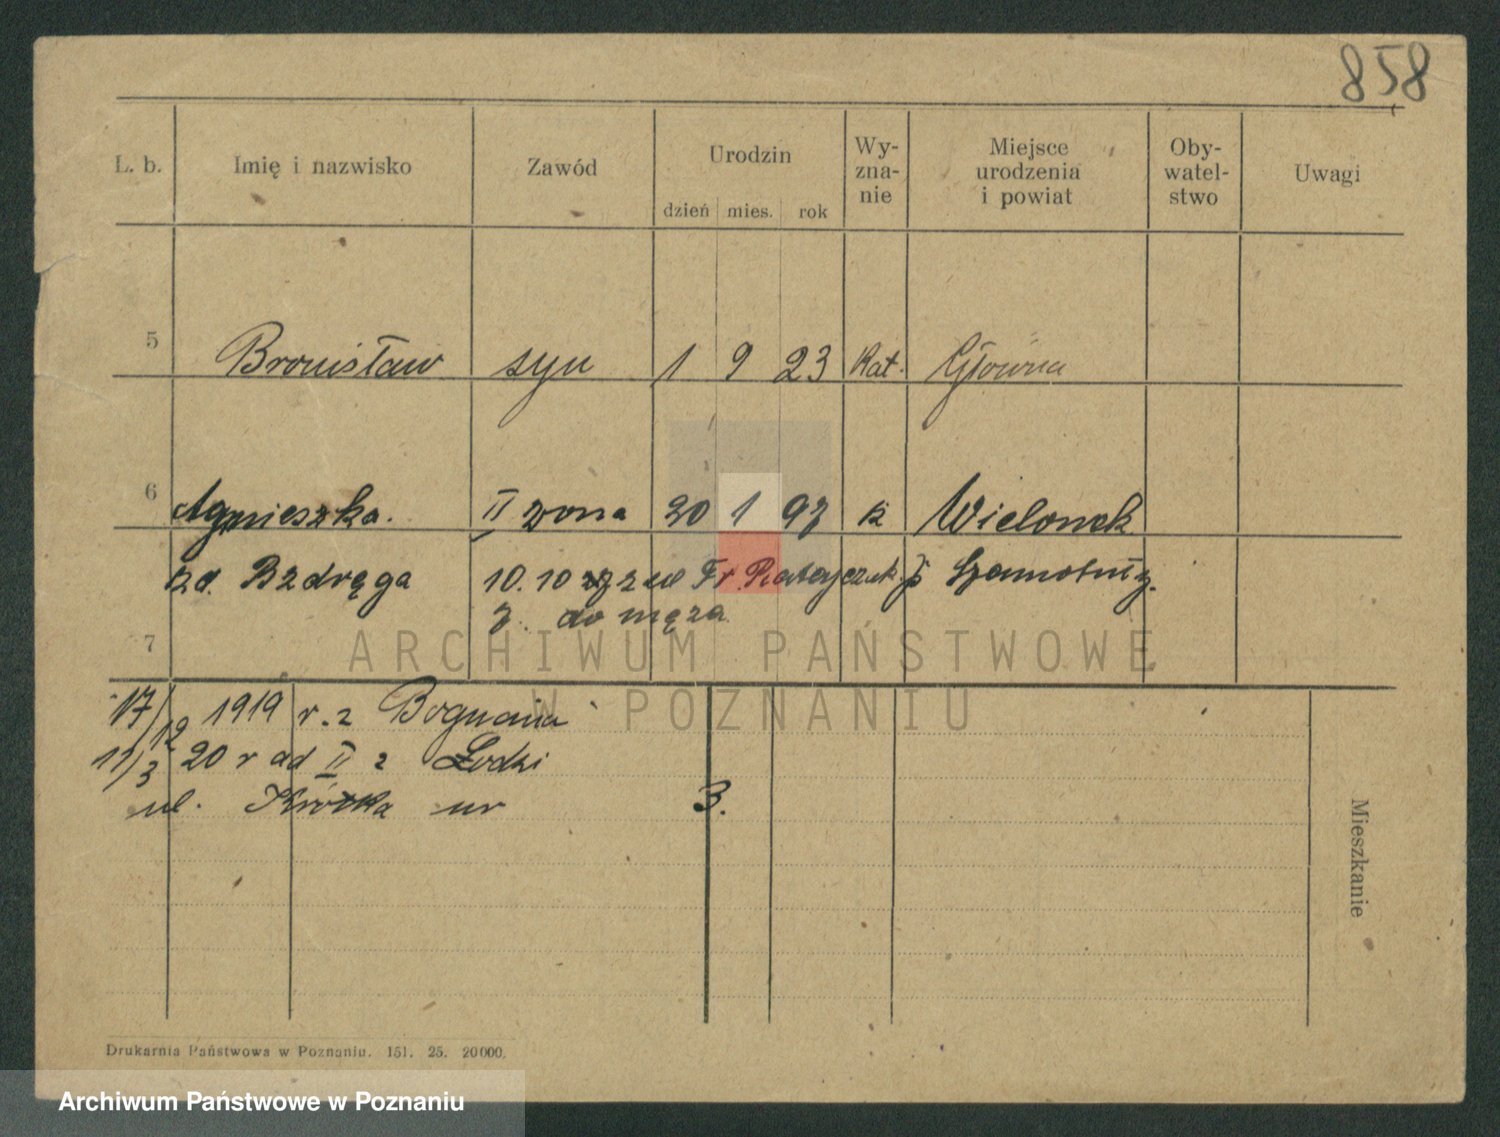 858
L. b. Imię i nazwisko Zawód Urodzin dzień mies. rok Wy-zna-nie Miejsce urodzenia i powiat Oby-watel-stwo Uwagi
5 Bronisław syn 1 9 23 Kat. Główna
6 Agnieszka. II żona 20 1 97 k Wielonek
zd. Bzdręga 10.10 z ul Fr. Ratajczak Szamotuły.
7 do męża
ARCHIWUM PAŃSTWOWE
W POZNANIU
17/12 1919 r. z Bognania
11/3 20 r ad II z Łodzi
ul. Krótka nr 3.
Mieszkanie
Drukarnia Państwowa w Poznaniu. 151. 25. 20000.
Archiwum Państwowe w Poznaniu